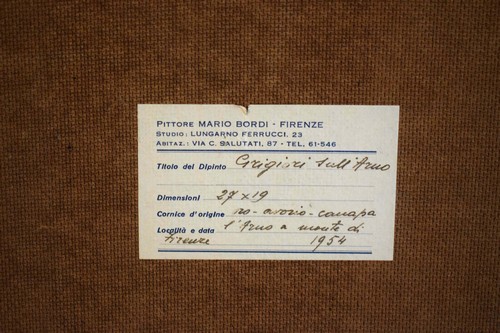 PITTORE MARIO BORDI - FIRENZE
STUDIO: LUNGARNO FERRUCCI, 23
ABITAZ.: VIA C. SALUTATI, 87 - TEL. 61-546
Titolo del Dipinto Grigiori sull'Arno
Dimensioni 27x19
Cornice d'origine avorio-canapa
Località e data l'Arno a monte di
Firenze 1954